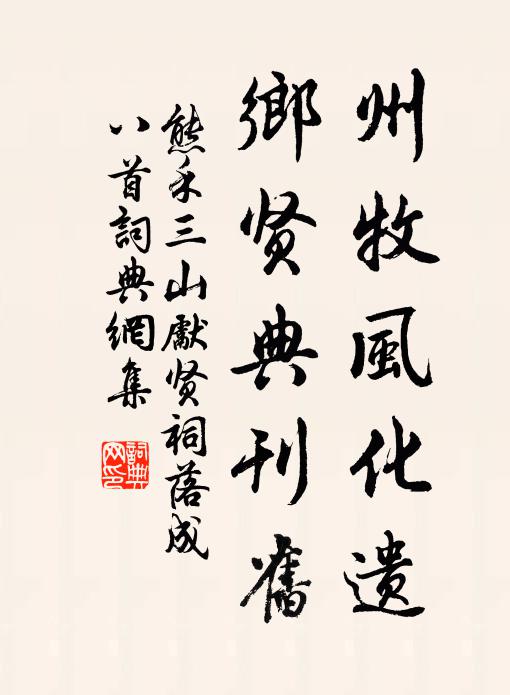 州牧風化遗
鄉贤典刊舊
熊禾三山獻贤祠落成
八首詞典網集
詞典网印